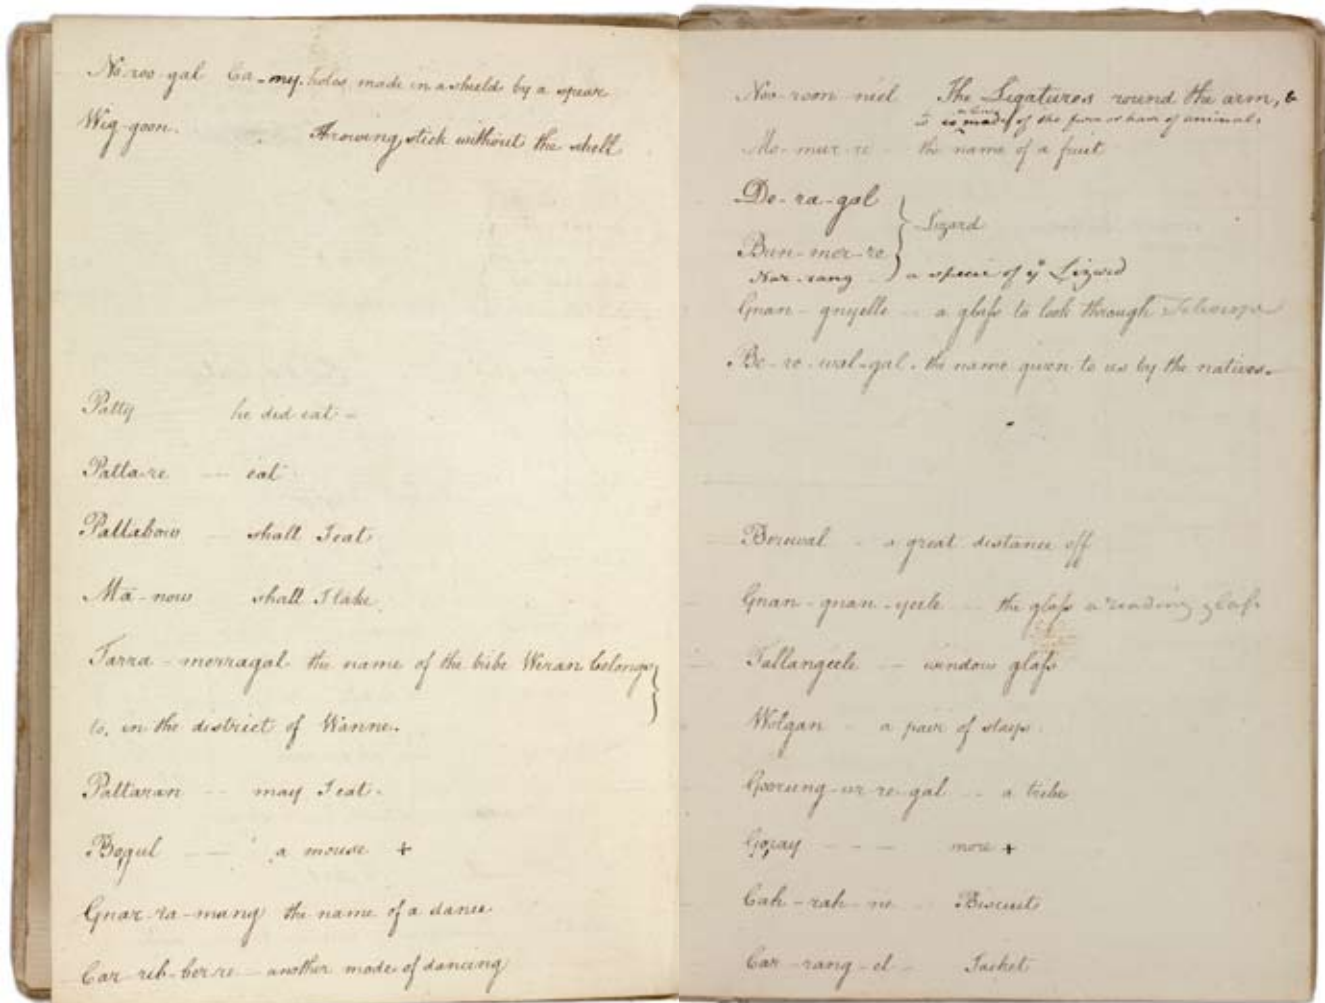 No-roo-gal Ca-my. holes made in a shield by a spear
Wig-goon. Throwing stick without the shell
Patty he did eat -
Patta-re -- eat
Pattabow -- shall I eat
Ma-now shall I take
Tarra-morragal the name of the tribe Weran belongs }
to, in the district of Wanne.
Pattaran -- may I eat.
Bogul -- a mouse +
Gnar-ra-mang the name of a dance
Car-rib-ber-re - another mode of dancing
Noo-roon-niel The Ligatures round the arm, &
is made of the furr or hair of animals
Mo-mur-re -- the name of a fruit
De-ra-gal }
Lizard
Bun-mer-re }
Nar-rang - a specie of ye Lizard
Gnan-gnyelle -- a glaſs to look through Telescope
Be-re-wal-gal. the name given to us by the natives.
Berewal - a great distance off
Gnan-gnan-yeele -- the glaſs a reading glaſs
Tallangeele -- window glaſs
Wolgan - a pair of stays.
Goorung-ur-re-gal -- a tribe
Goray - - - more +
Cah-rah-ne Biscuit
Car-rang-el - Jacket